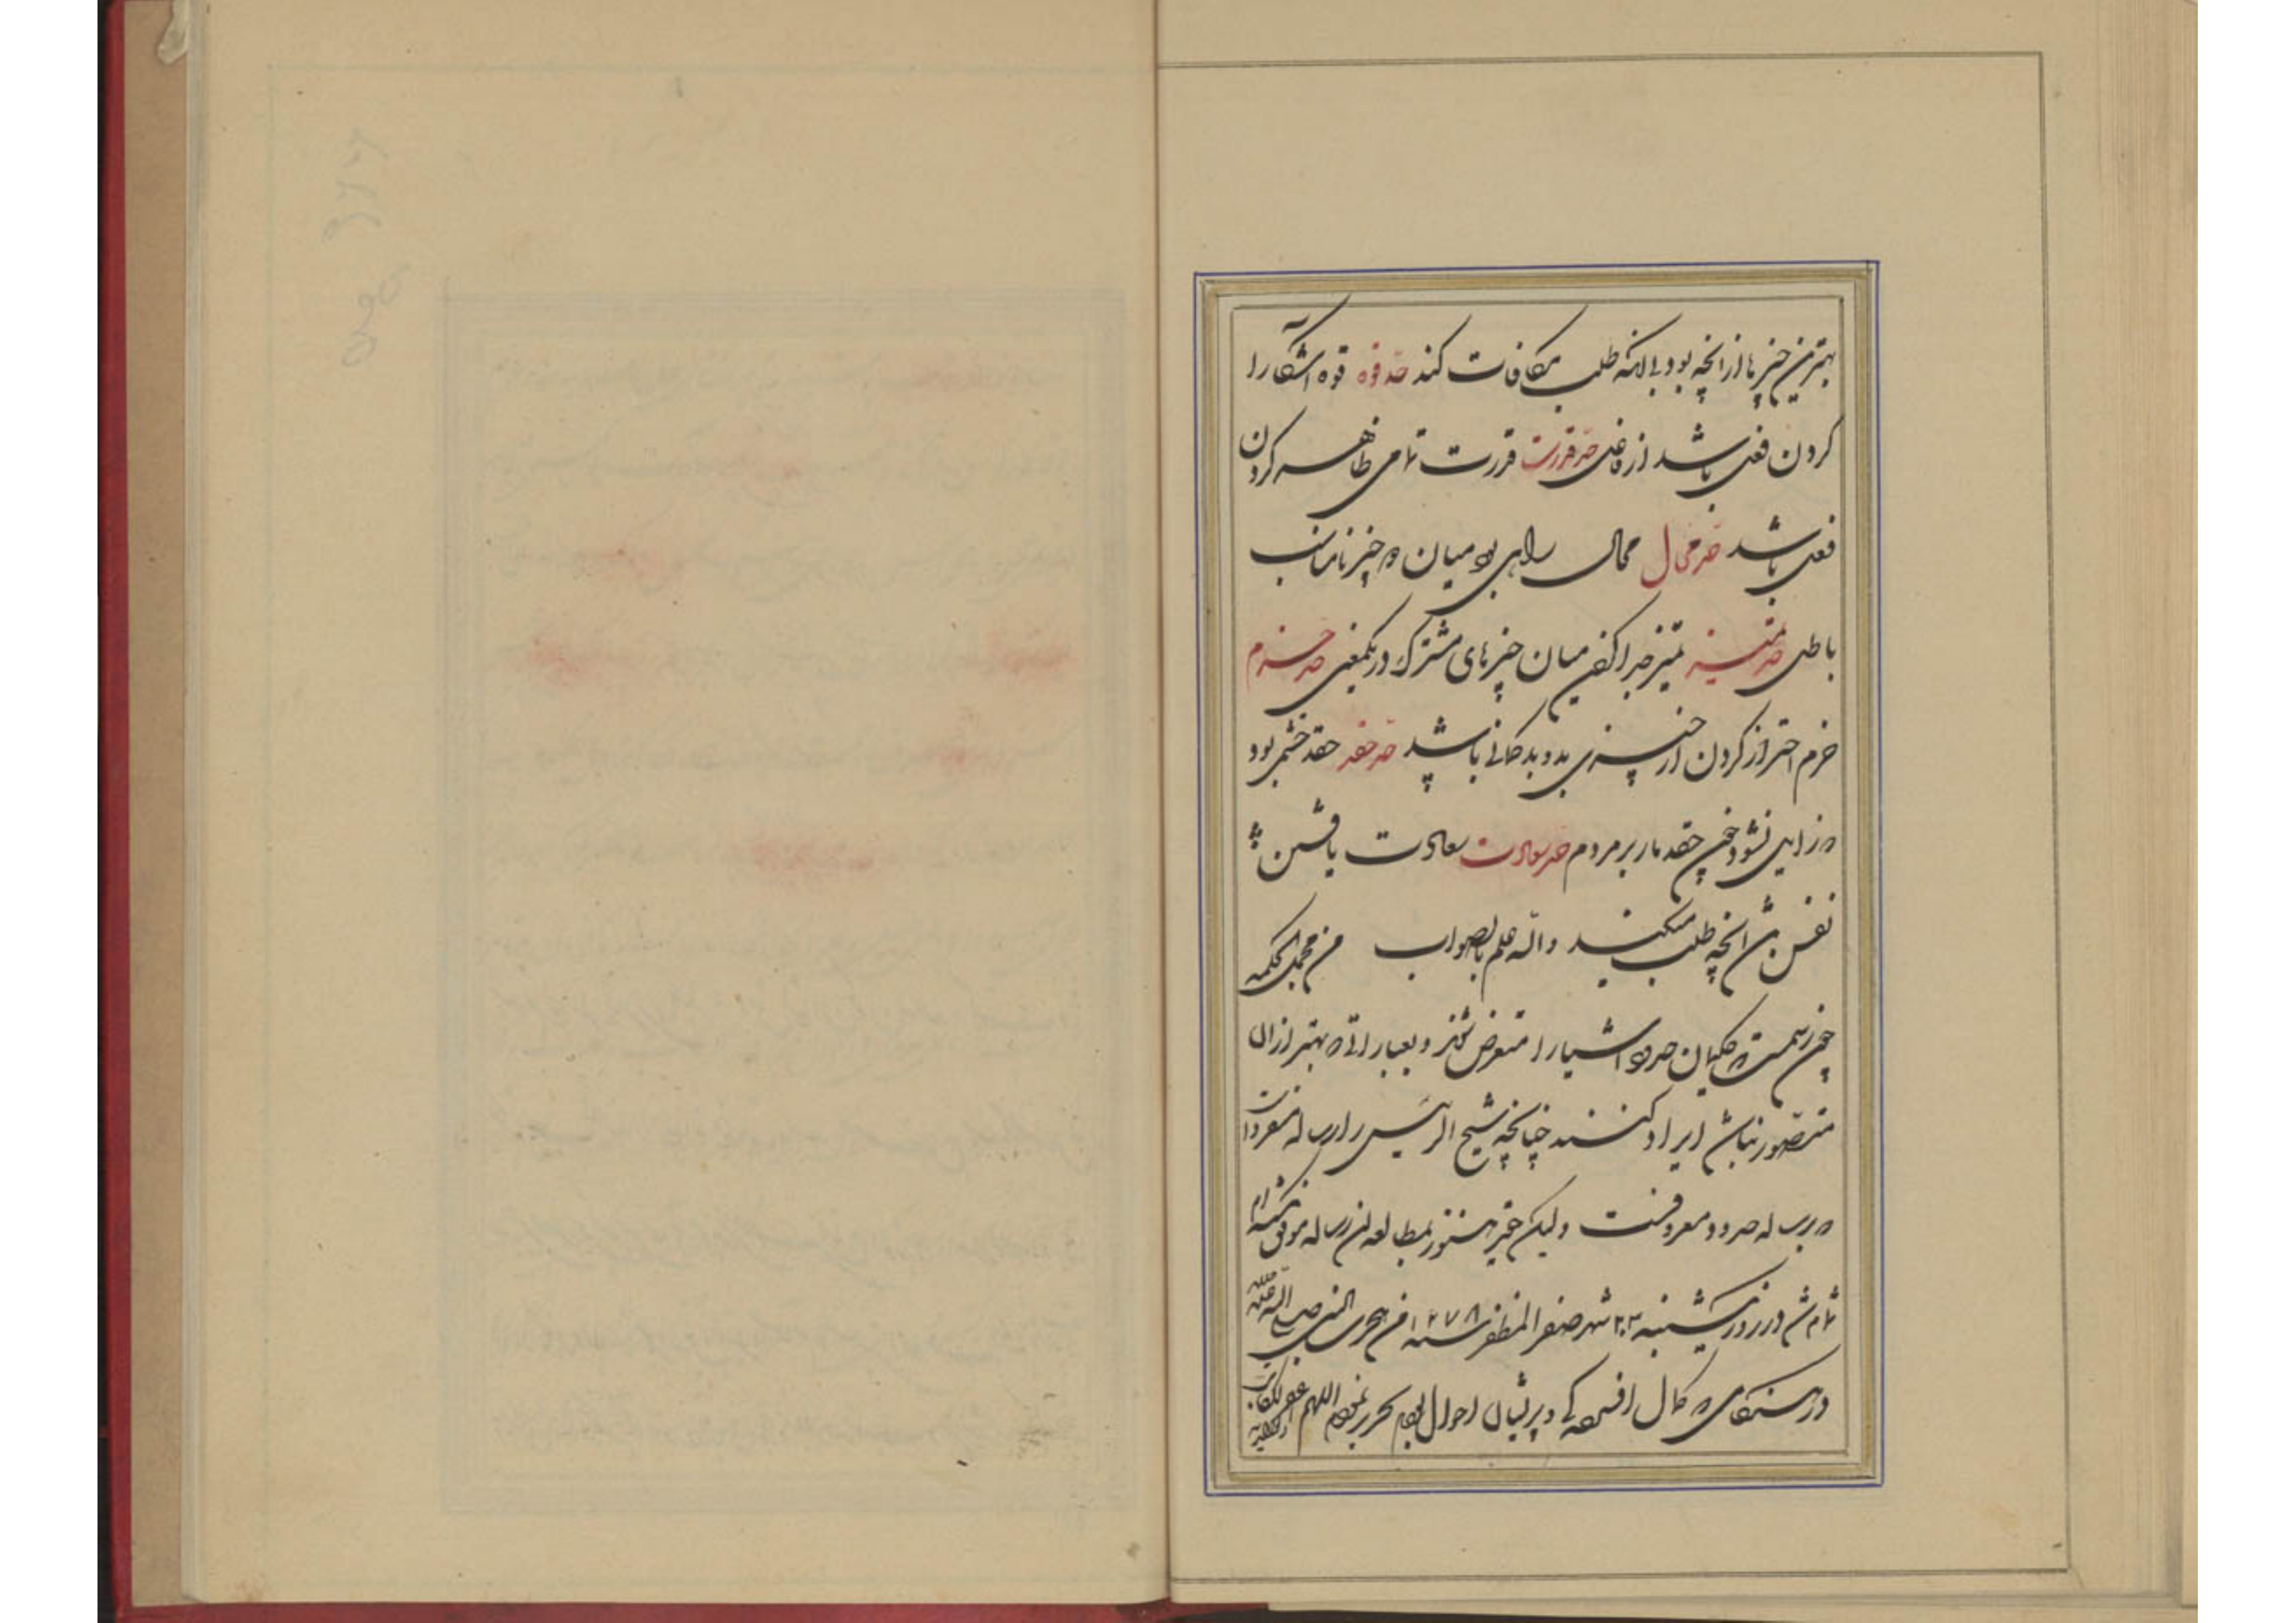 بهترین چیزها از آنچه بود بی آنکه طلب مکافات کند حد قوه قوه آشکارا
کردن فعل باشد از فاعل حد قدرت قدرت تمامی ظاهر کردن
فعل باشد حد محال محال راهی بود میان دو چیز نامناسب
باطل حد تمییز تمیز جدا کردن میان چیزهای مشترک در یکمعنی حد حزم
حزم احتراز کردن از چیزی بد و بدگمانی باشد حد حقد حقد خشمی بود
که زایل نشود چون حقد مار بر مردم حد سعادت سعادت یافتن
نفس باشد آنچه طلب میکند والله اعلم بالصواب من مجمل الحکمه
چون رسمست که حکیمان حدود اشیا را متعرض شوند و بعباراتی که بهتر از آن
متصور نباشد ایراد کنند چنانچه شیخ الرئیس را رساله مفردات
که برساله حدود معروفست ولیکن حقیر هنوز بمطالعه آن رساله موفق نشده ام
تمام شد در روز یکشنبه ۲۳ شهر صفر المظفر سنه ۱۲۷۸ من هجری النبی صلی الله علیه
در هنگامی که کمال افسردگی و پریشان احوال بودم تحریر نمودم اللهم اغفر لکاتب